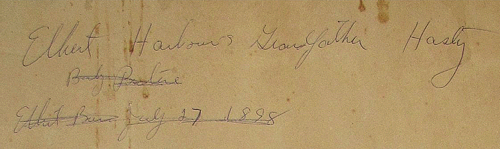 Elbert Harbour's Grandfather Hasty
Elbert Born July 27 1898